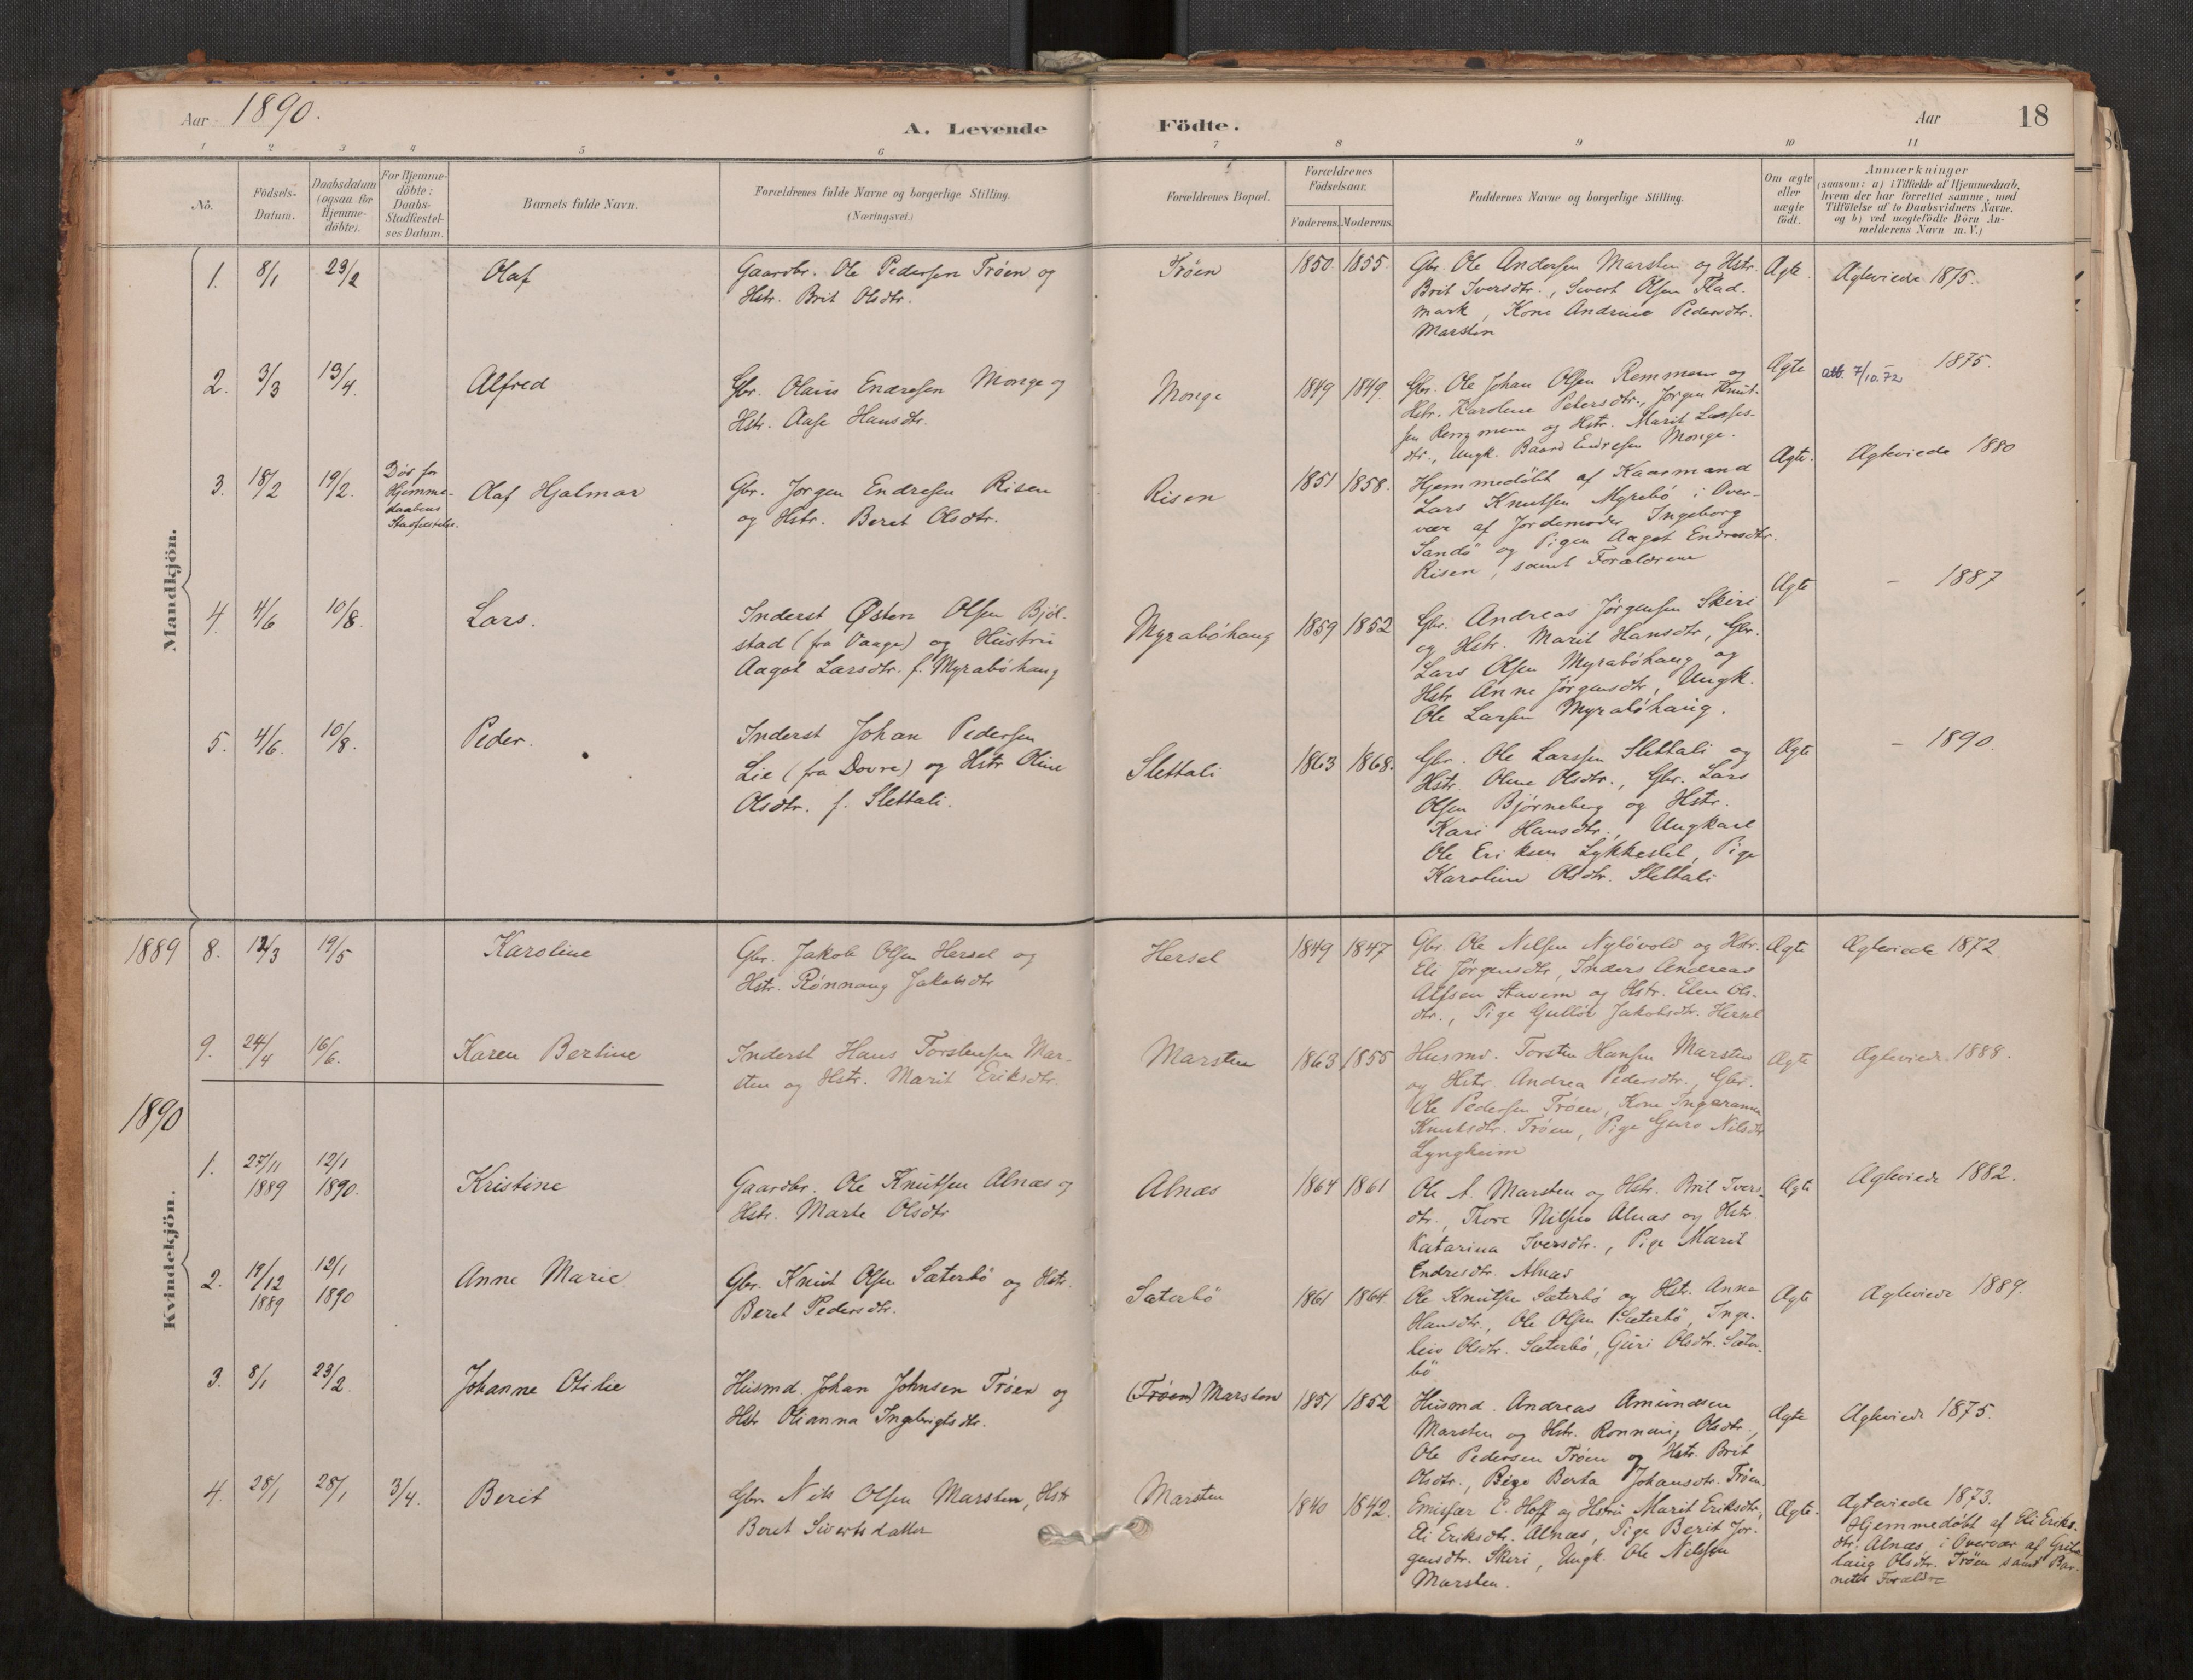 Aar 1890.
A. Levende Födte.
Aar
18
1 2 3 4 5 6 7 8 9 10 11
No.
Födsels-Datum.
Daabsdatum (ogsaa for Hjemme-döbte).
For Hjemme-döbte: Daabs-Stadfæstel-ses Datum.
Barnets fulde Navn.
Forældrenes fulde Navne og borgerlige Stilling.
(Næringsvei.)
Forældrenes Bopæl.
Forældrenes Födselsaar.
Faderens.
Moderens.
Faddernes Navne og borgerlige Stilling.
Om ægte eller uægte födt.
Anmærkninger
(saasom: a) i Tilfælde af Hjemmedaab,
hvem der har forrettet samme, med
Tilföielse af to Daabsvidners Navne,
og b) ved uægtefödte Börn An-
melderens Navn m. V.)
Mandkjön.
1. 8/1 23/2 Olaf
Gaardbr. Ole Pedersen Tröen og
Hstr. Brit Olsdtr.
Tröen
1850. 1855.
Gbr. Ole Andersen Marsten og Hstr.
Brit Iversdtr., Sivert Olsen Flad-
mark, Kone Andrine Pedersdtr.
Marsten
Ægte.
Ægteviede 1875.
2. 3/3 13/4. Alfred
Gbr. Olaus Endresen Monge og
Hstr. Aase Hansdtr.
Monge
1849 1849.
Gbr. Ole Johan Olsen Remmem og
Hstr. Karoline Petersdtr., Jörgen Knut-
sen Remmem og Hstr. Marit Lasses-
dtr., Ungk. Baard Endresen Monge.
Ægte
att. 7/10.72 – 1875.
3. 18/2 19/2.
Död før
Hjemme-
daabens
Stadfæstelse.
Olaf Hjalmar
Gbr. Jørgen Endresen Risen
og Hstr. Beret Olsdtr.
Risen
1851 1858.
Hjemmedöbt af Kaarmand
Lars Knutsen Myrebö i Over-
vær af Jordemoder Ingeborg
Sandö og Pigen Aagot Endresdtr.
Risen, samt Forældrene
Ægte.
Ægteviede 1880
4. 4/6 10/8. Lars.
Inderst Østen Olsen Bjöl-
stad (fra Vaage) og Hustru
Aagot Larsdtr. f. Myrabóhaug
Myrabóhaug
1859 1852
Gbr. Andreas Jørgensen Skiri
og Hstr. Marit Hansdtr, Gbr.
Lars Olsen Myrabóhaug og
Hstr Anne Jørgensdtr, Ungk.
Ole Larsen Myrabóhaug.
Ægte
– 1887
5. 4/6. 10/8. Peder.
Inderst Johan Pedersen
Lie (fra Dovre) og Hstr Oline
Olsdtr. f. Slettali.
Slettali
1863 1868.
Gbr. Ole Larssen Slettali og
Hstr. Oline Olsdtr., Gbr. Lars
Olsen Bjørneberg og Hstr.
Kari Hansdtr., Ungkarl
Ole Eriksen Lykkeslet, Pige
Karoline Olsdtr. Slettali
Ægte
– 1890.
1889
8. 12/3 19/5 Karoline
Gbr. Jakob Olsen Hersel og
Hstr. Rønnaug Jakobsdtr
Hersel
1849 1847
Gbr. Ole Nilsen Nylövold og Hstr.
Eli Jørgensdtr, Inders Andreas
Alfsen Stavem og Hstr. Elen Ols-
dtr., Pige Gullör Jakobsdtr. Hersel
Ægte
Ægteviede 1872
9. 24/4 16/6. Karen Bertine
Inderst Hans Torstensen Mar-
sten og Hstr. Marit Eriksdtr.
Marsten
1863 1855
Husmd. Torsten Hansen Marsten
og Hstr. Andrea Pedersdtr., Gbr.
Ole Pedersen Tröen, Kone Ingeranna
Knutsdtr. Tröen, Pige Guro Nilsdtr
Lyngheim
Ægte
Ægteviede 1888.
1890
Kvindekjön.
1. 27/11 1889 12/1 1890. Kristine
Gaardbr. Ole Knutsen Alnæs og
Hstr. Marte Olsdtr
Alnæs
1864 1861
Ole A. Marsten og Hstr. Brit Ivers-
dtr., Thore Nilsen Alnæs og Hstr.
Katarina Iversdtr., Pige Marit
Endresdtr. Alnæs
Ægte
Ægteviede 1882.
2. 19/12 1889 12/1 1890 Anne Marie
Gbr. Knut Olsen Sæterbö og Hstr.
Beret Pedersdtr.
Sæterbö
1861 1864.
Ole Knutsen Sæterbö og Hstr. Anne
Hansdtr., Ole Olsen Sæterbö, Inge-
leiv Olsdtr. Sæterbö, Guri Olsdtr. Sæter-
bö
Ægte
Ægteviede 1889.
3. 8/1 23/2. Johanne Otilie
Husmd. Johan Johnsen Tröen og
Hstr Olianna Ingebrigtsdtr.
(Tröen) Marsten
1851 1852
Husmd. Andreas Amundsen
Marsten og Hstr. Rønnaug Olsdtr.,
Ole Pedersen Tröen og Hstr. Brit
Olsdtr., Pige Berta Johansdtr. Tröen
Ægte
Ægteviede 1875.
4. 28/1 28/1 3/4. Berit
Gbr. Nils Olsen Marsten, Hstr
Beret Sivertsdatter
Marsten
1840 1842.
Emisær C. Hoff og Hstru Marit Eriksdtr,
Eli Eriksdtr. Alnæs, Pige Berit Jør-
gensdtr. Skiri, Ungk. Ole Nilssen
Marsten.
Ægte.
Ægteviede 1873.
Hjemmedöbt af Eli Eriks-
dtr. Alnæs, i Overvær af
laug Olsdtr. Tröen samt Bar-
nets Forældre